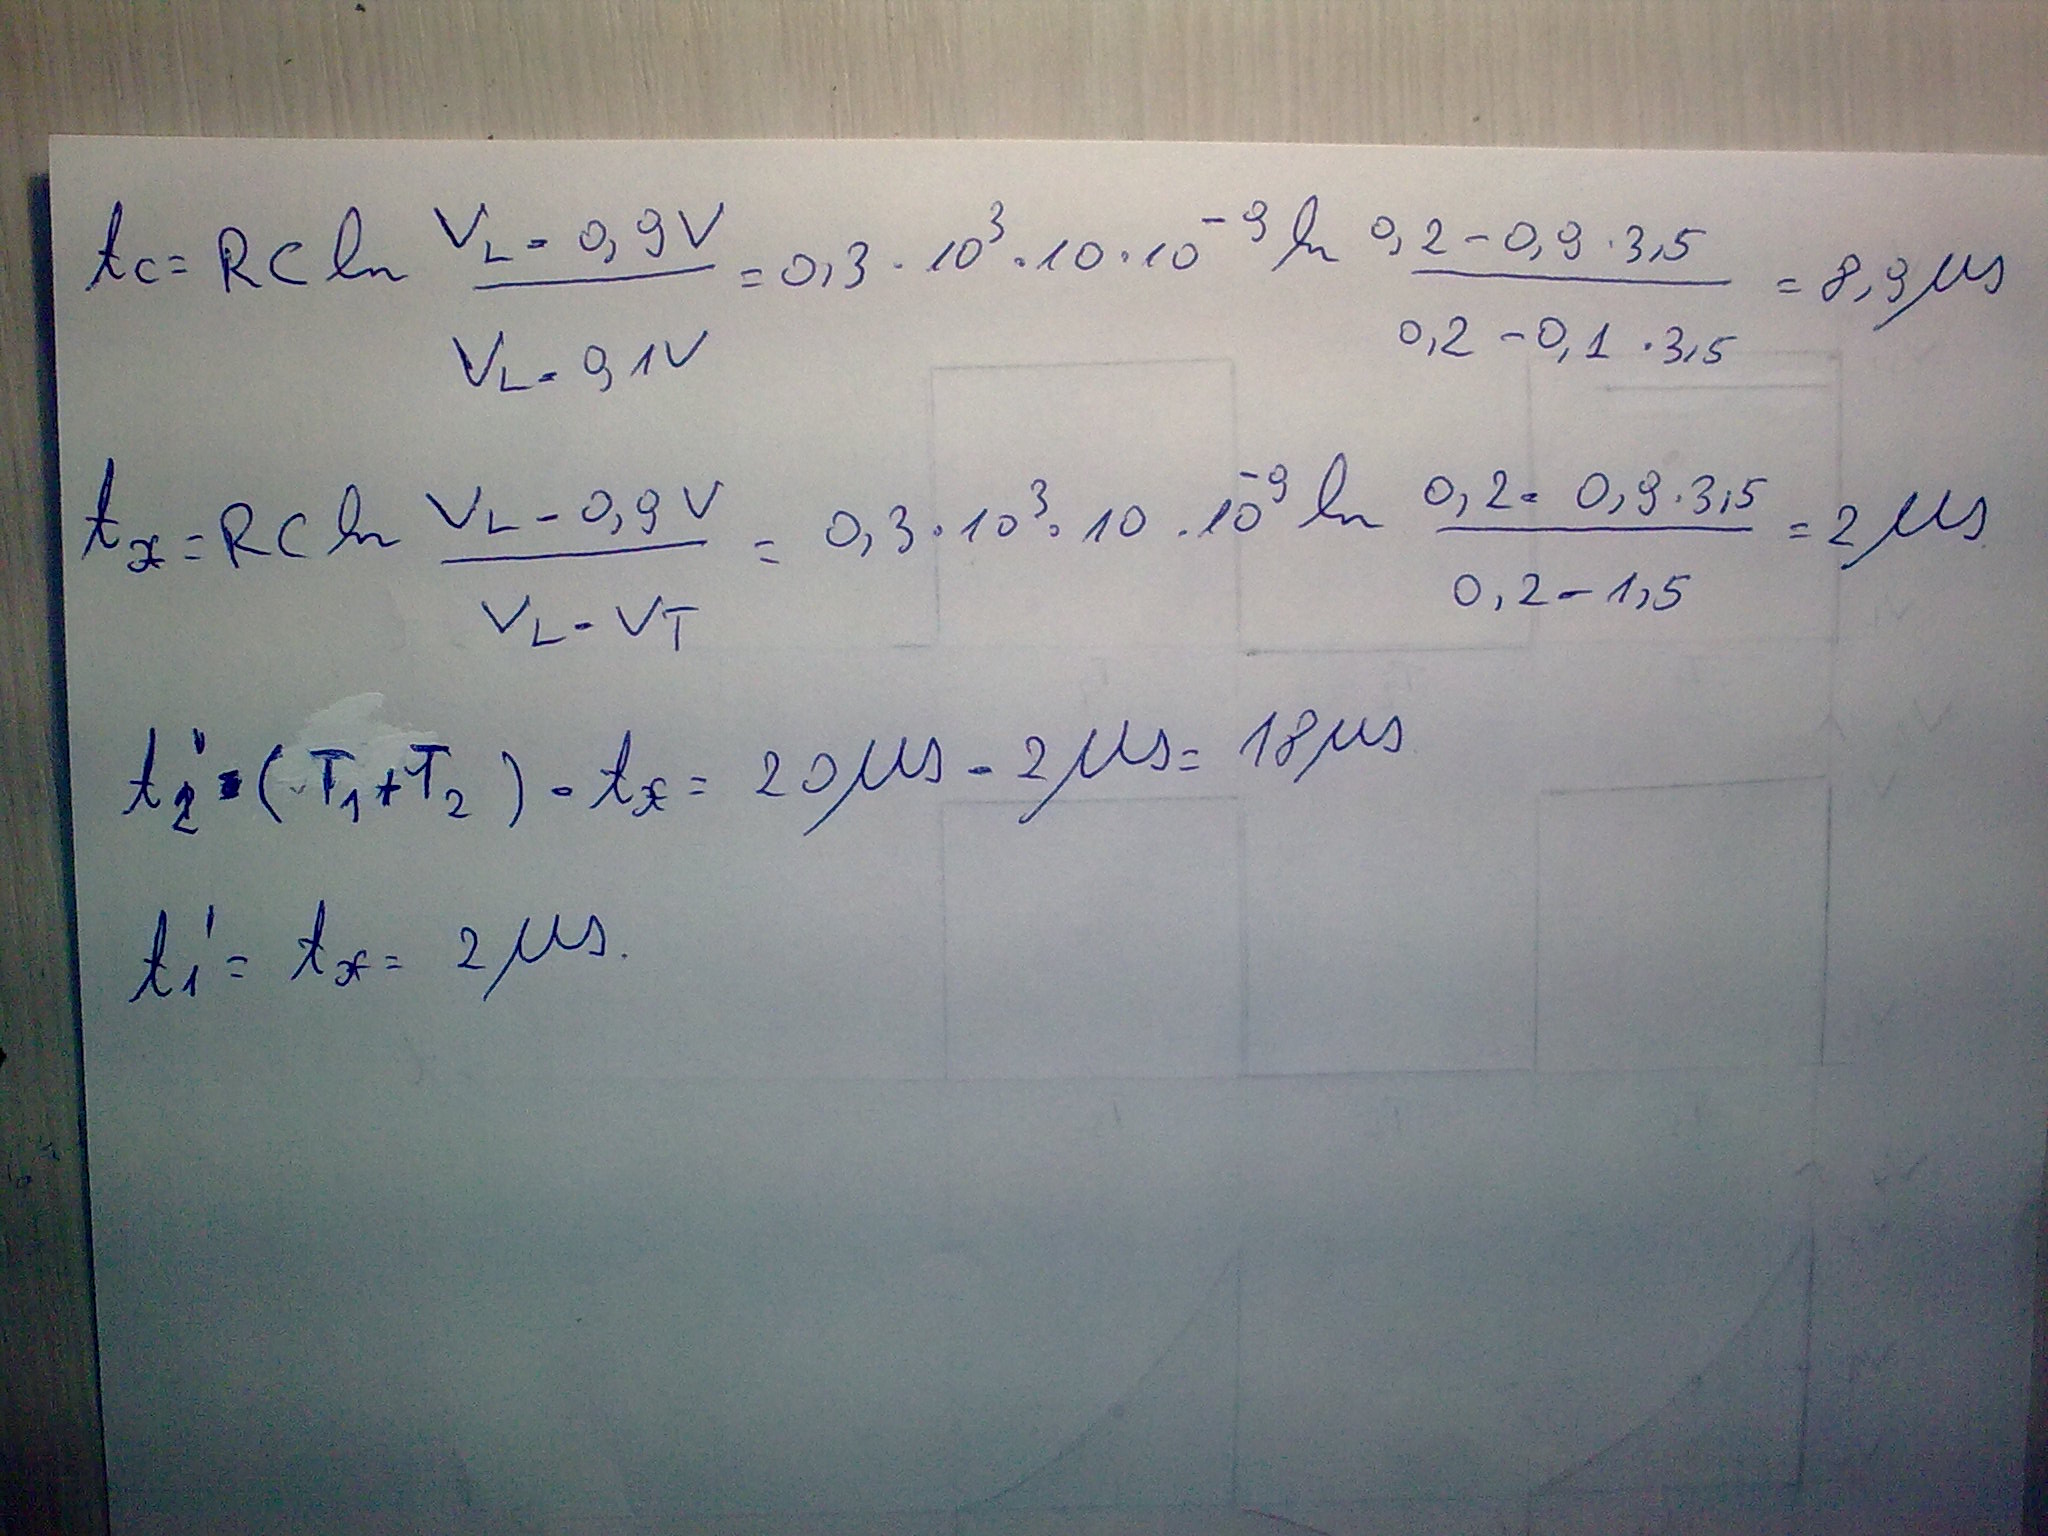 tc = RC ln (VL - 0,9V) / (VL - 0,1V) = 0,3 · 10³ · 10 · 10⁻⁹ ln (0,2 - 0,9 · 3,5) / (0,2 - 0,1 · 3,5) = 8,9 μs
tx = RC ln (VL - 0,9V) / (VL - VT) = 0,3 · 10³ · 10 · 10⁻⁹ ln (0,2 - 0,9 · 3,5) / (0,2 - 1,5) = 2 μs
t2' = (T1 + T2) - tx = 20 μs - 2 μs = 18 μs
t1' = tx = 2 μs.